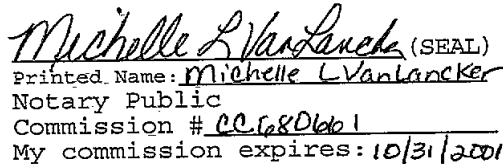 Michelle L VanLancker (SEAL)
Printed Name: Michelle L VanLancker
Notary Public
Commission # CC680661
My commission expires: 10/31/2001